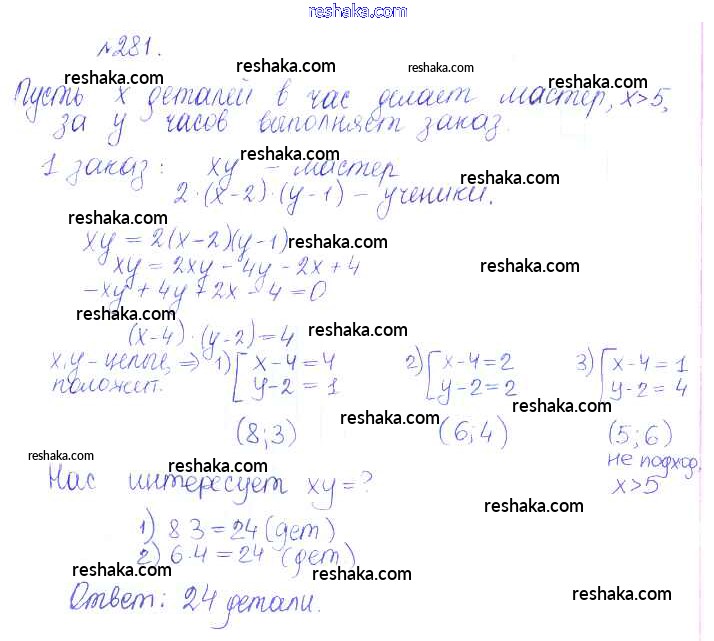 reshaka.com
№281.
reshaka.com reshaka.com reshaka.com reshaka.com
Пусть x деталей в час делает мастер, x>5,
reshaka.com reshaka.com
за y часов выполняет заказ.
reshaka.com
1 заказ: xy - мастер
reshaka.com
2·(x-2)·(y-1) - ученики.
reshaka.com
xy = 2(x-2)(y-1)
reshaka.com
xy = 2xy - 4y - 2x + 4
reshaka.com
-xy + 4y + 2x - 4 = 0
reshaka.com
(x-4)·(y-2) = 4
reshaka.com
x,y - целые, ⇒ 1) [ x-4=4 2) [ x-2=2 3) [ x-4=1
положит. y-2=1 y-2=2 y-2=4
reshaka.com
reshaka.com
(8;3) (6;4) (5;6)
reshaka.com reshaka.com
не подход.
Нас интересует xy=? x>5
reshaka.com
1) 8·3=24 (дет)
2) 6·4=24 (дет)
reshaka.com reshaka.com
Ответ: 24 детали.
reshaka.com